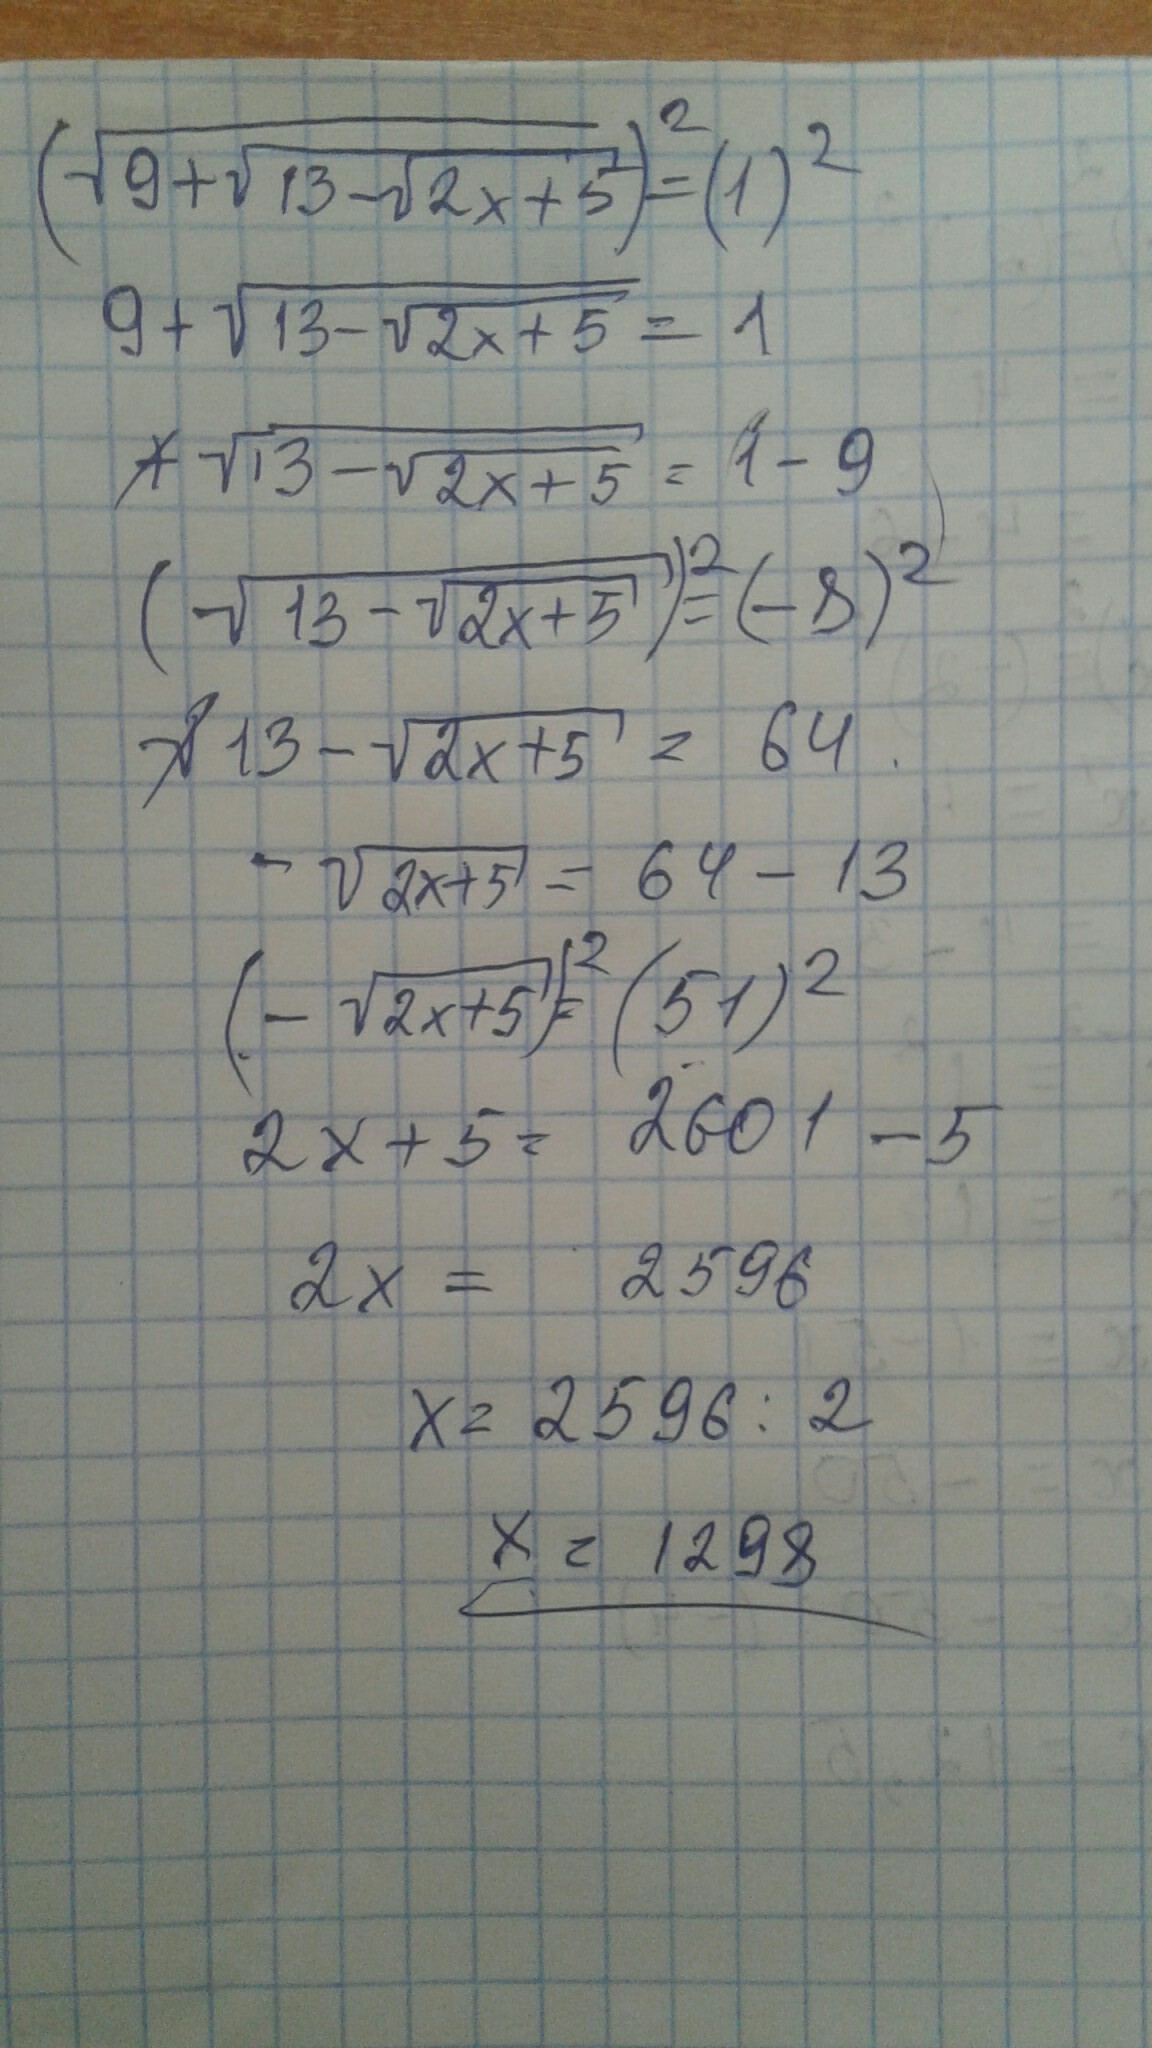 (√9+√13-√2x+5)² = (1)²
9+√13-√2x+5 = 1
√13-√2x+5 = 1-9
(√13-√2x+5)² = (-8)²
13-√2x+5 = 64
-√2x+5 = 64-13
(-√2x+5)² = (51)²
2x+5 = 2601 -5
2x = 2596
x = 2596 : 2
x = 1298